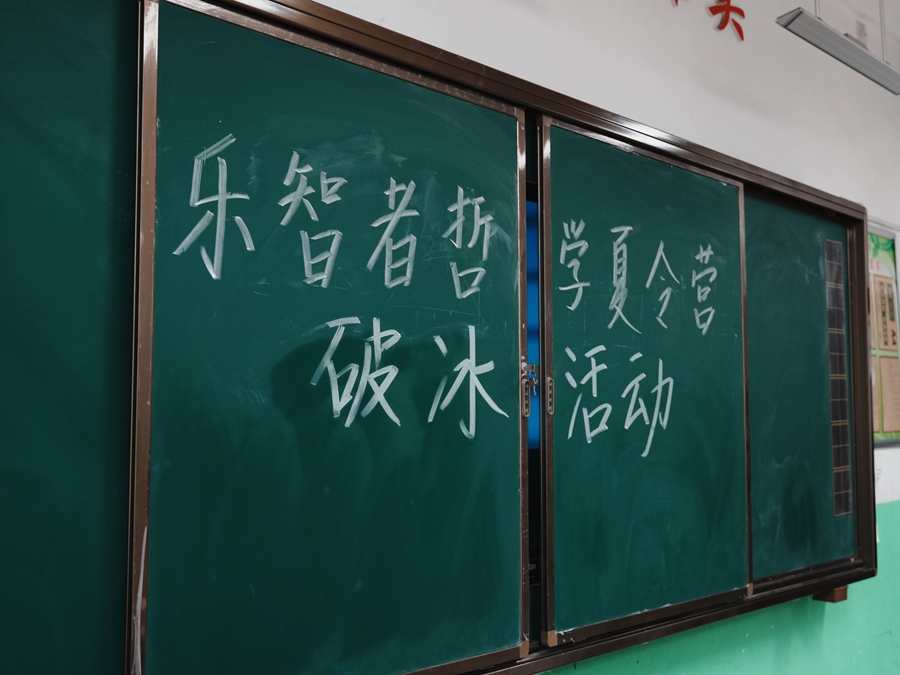 乐智者哲学夏令营
破冰活动